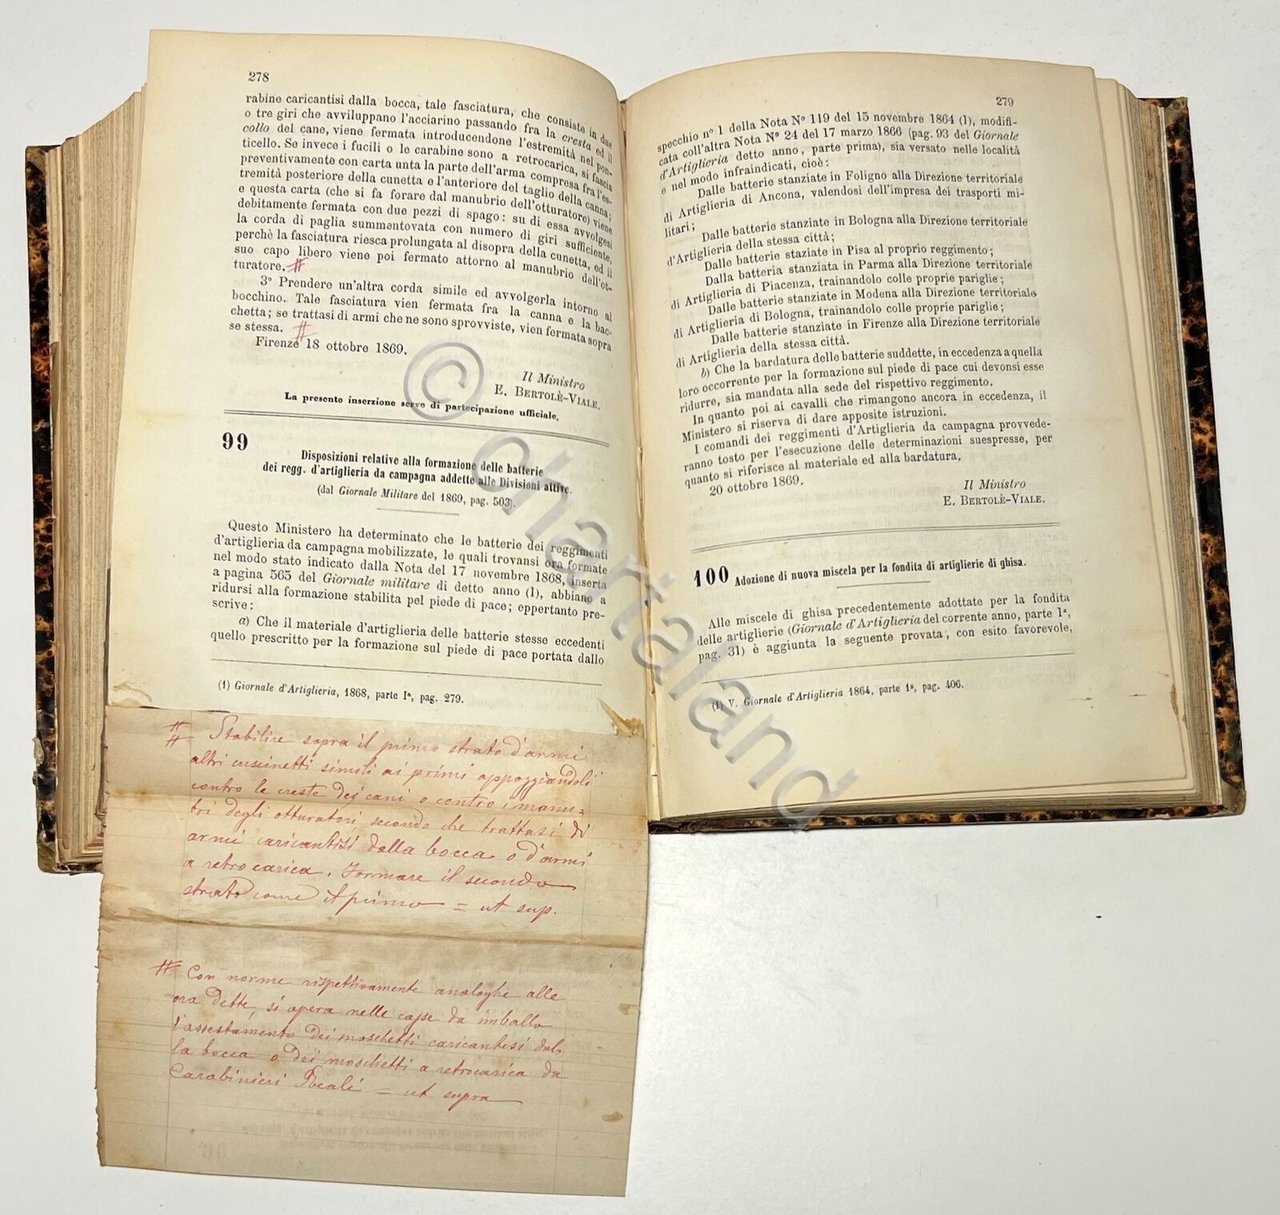 278
rabine caricantisi dalla bocca, tale fasciatura, che consiste in due
o tre giri che avviluppano l'acciarino passando fra la cresta ed il
collo del cane, viene fermata introducendone l'estremità nel pon-
ticello. Se invece i fucili o le carabine sono a retrocarica, si fascia
preventivamente con carta unta la parte dell'arma compresa fra l'es-
tremità posteriore della cunetta e l'anteriore del taglio della canna;
e questa carta (che si fa forare dal manubrio dell'otturatore) viene
debitamente fermata con due pezzi di spago: su di essa avvolgesi
la corda di paglia summentovata con numero di giri sufficiente,
perchè la fasciatura riesca prolungata al disopra della cunetta, ed il
suo capo libero viene poi fermato attorno al manubrio dell'ot-
turatore. #
3° Prendere un'altra corda simile ed avvolgerla intorno al
bocchino. Tale fasciatura vien fermata fra la canna e la bac-
chetta; se trattasi di armi che ne sono sprovviste, vien fermata sopra
se stessa. #
Firenze 18 ottobre 1869.
Il Ministro
E. BERTOLÈ-VIALE.
La presente inserzione serve di partecipazione ufficiale.
99
Disposizioni relative alla formazione delle batterie
dei regg. d'artiglieria da campagna addette alle Divisioni attive.
(dal Giornale Militare del 1869, pag. 503).
Questo Ministero ha determinato che le batterie dei reggimenti
d'artiglieria da campagna mobilizzate, le quali trovansi ora formate
nel modo stato indicato dalla Nota del 17 novembre 1868, inserta
a pagina 565 del Giornale militare di detto anno (1), abbiano a
ridursi alla formazione stabilita pel piede di pace; eppertanto pre-
scrive:
a) Che il materiale d'artiglieria delle batterie stesse eccedenti
quello prescritto per la formazione sul piede di pace portata dallo
(1) Giornale d'Artiglieria, 1868, parte Iª, pag. 279.
# Stabilire sopra il primo strato d'armi
# altri cuscinetti simili ai primi appoggiandoli
contro le creste dei cani o contro i manu-
bri degli otturatori secondo che trattasi di
armi caricantisi dalla bocca o d'armi
a retrocarica. Formare il secondo
strato come il primo = ut sup.
# Con norme rispettivamente analoghe alle
ora dette, si opera nelle casse da imballo
l'assestamento dei moschetti caricantesi dal-
la bocca o dei moschetti a retrocarica da
Carabinieri Reali = ut supra
279
specchio n° 1 della Nota N° 119 del 15 novembre 1864 (1), modifi-
cata coll'altra Nota N° 24 del 17 marzo 1866 (pag. 93 del Giornale
d'Artiglieria detto anno, parte prima), sia versato nelle località
e nel modo infraindicati, cioè:
Dalle batterie stanziate in Foligno alla Direzione territoriale
di Artiglieria di Ancona, valendosi dell'impresa dei trasporti mi-
litari;
Dalle batterie stanziate in Bologna alla Direzione territoriale
d'Artiglieria della stessa città;
Dalle batterie staziate in Pisa al proprio reggimento;
Dalla batteria stanziata in Parma alla Direzione territoriale
di Artiglieria di Piacenza, trainandolo colle proprie pariglie;
Dalle batterie stanziate in Modena alla Direzione territoriale
di Artiglieria di Bologna, trainandolo colle proprie pariglie;
Dalle batterie stanziate in Firenze alla Direzione territoriale
di Artiglieria della stessa città.
b) Che la bardatura delle batterie suddette, in eccedenza a quella
loro occorrente per la formazione sul piede di pace cui devonsi esse
ridurre, sia mandata alla sede del rispettivo reggimento.
In quanto poi ai cavalli che rimangono ancora in eccedenza, il
Ministero si riserva di dare apposite istruzioni.
I comandi dei reggimenti d'Artiglieria da campagna provvede-
ranno tosto per l'esecuzione delle determinazioni suespresse, per
quanto si riferisce al materiale ed alla bardatura.
20 ottobre 1869.
Il Ministro
E. BERTOLÈ-VIALE.
100 Adozione di nuova miscela per la fondita di artiglierie di ghisa.
Alle miscele di ghisa precedentemente adottate per la fondita
delle artiglierie (Giornale d'Artiglieria del corrente anno, parte 1ª,
pag. 31) è aggiunta la seguente provata, con esito favorevole,
(1) V. Giornale d'Artiglieria 1864, parte 1ª, pag. 406.
© chartaland